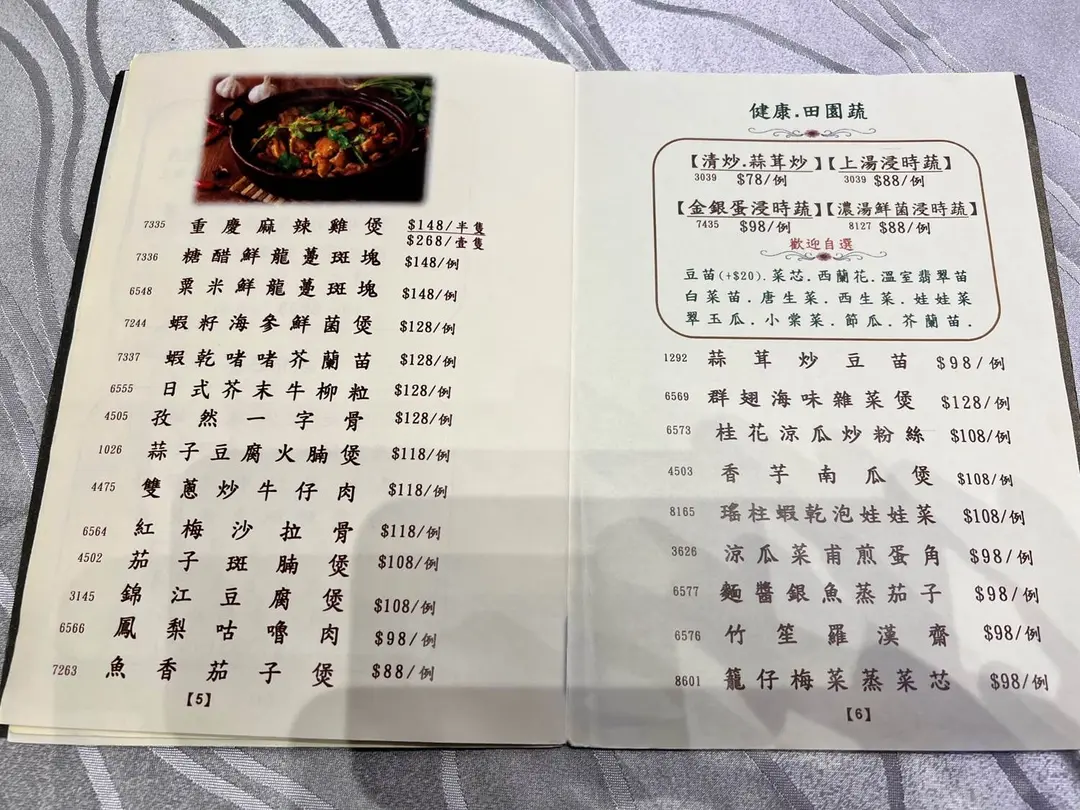 7335 重慶麻辣雞煲 $148/半隻
$268/壹隻
7336 糖醋鮮龍躉斑塊 $148/例
6548 粟米鮮龍躉斑塊 $148/例
7244 蝦籽海參鮮菌煲 $128/例
7337 蝦乾啫啫芥蘭苗 $128/例
6555 日式芥末牛柳粒 $128/例
4505 孜然一字骨 $128/例
1026 蒜子豆腐火腩煲 $118/例
4475 雙蔥炒牛仔肉 $118/例
6564 紅梅沙拉骨 $118/例
4502 茄子斑腩煲 $108/例
3145 錦江豆腐煲 $108/例
6566 鳳梨咕嚕肉 $98/例
7263 魚香茄子煲 $88/例
【5】
健康.田園蔬
【清炒.蒜茸炒】【上湯浸時蔬】
3039 $78/例 3039 $88/例
【金銀蛋浸時蔬】【濃湯鮮菌浸時蔬】
7435 $98/例 8127 $88/例
歡迎自選
豆苗(+$20).菜芯.西蘭花.溫室翡翠苗
白菜苗.唐生菜.西生菜.娃娃菜
翠玉瓜.小棠菜.節瓜.芥蘭苗.
1292 蒜茸炒豆苗 $98/例
6569 群翅海味雜菜煲 $128/例
6573 桂花涼瓜炒粉絲 $108/例
4503 香芋南瓜煲 $108/例
8165 瑤柱蝦乾泡娃娃菜 $108/例
3626 涼瓜菜甫煎蛋角 $98/例
6577 麵醬銀魚蒸茄子 $98/例
6576 竹笙羅漢齋 $98/例
8601 籠仔梅菜蒸菜芯 $98/例
【6】